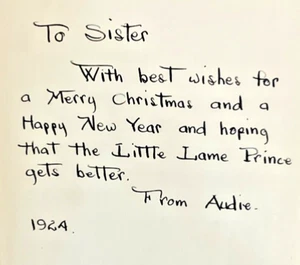 To Sister
With best wishes for
a Merry Christmas and a
Happy New Year and hoping
that the Little Lame Prince
gets better.
From Audie.
1924.